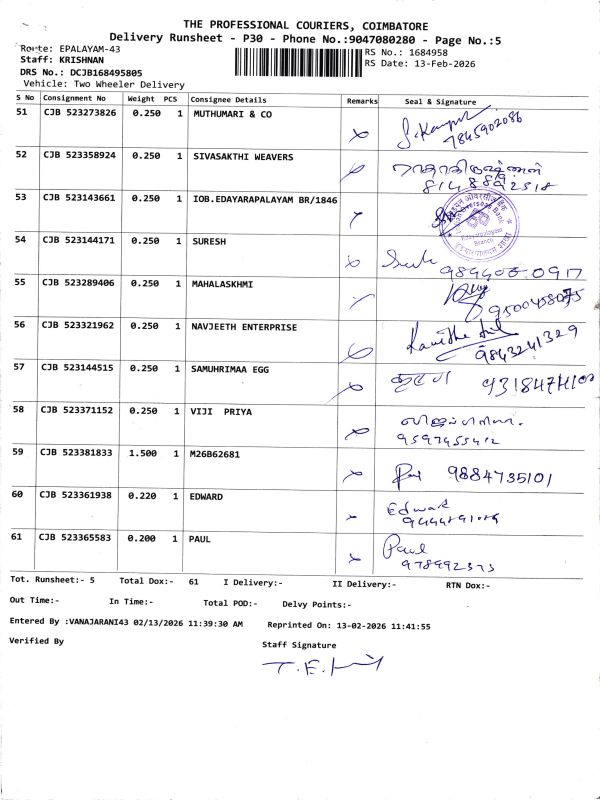 THE PROFESSIONAL COURIERS, COIMBATORE
Delivery Runsheet - P30 - Phone No.:9047080280 - Page No.:5
Route: EPALAYAM-43
RS No.: 1684958
Staff: KRISHNAN
RS Date: 13-Feb-2026
DRS No.: DCJB168495805
Vehicle: Two Wheeler Delivery
S No Consignment No Weight PCS Consignee Details Remarks Seal & Signature
51 CJB 523273826 0.250 1 MUTHUMARI & CO
7845902086
52 CJB 523358924 0.250 1 SIVASAKTHI WEAVERS
8148892518
53 CJB 523143661 0.250 1 IOB.EDAYARAPALAYAM BR/1846
54 CJB 523144171 0.250 1 SURESH
55 CJB 523289406 0.250 1 MAHALASKHMI
9500458075
56 CJB 523321962 0.250 1 NAVJEETH ENTERPRISE
9843241329
57 CJB 523144515 0.250 1 SAMUHRIMAA EGG
58 CJB 523371152 0.250 1 VIJI PRIYA
9597455412
59 CJB 523381833 1.500 1 M26B62681
9884735101
60 CJB 523361938 0.220 1 EDWARD
Edward
61 CJB 523365583 0.200 1 PAUL
Paul
Tot. Runsheet:- 5 Total Dox:- 61 I Delivery:- II Delivery:- RTN Dox:-
Out Time:- In Time:- Total POD:- Delvy Points:-
Entered By :VANAJARANI43 02/13/2026 11:39:30 AM Reprinted On: 13-02-2026 11:41:55
Verified By Staff Signature